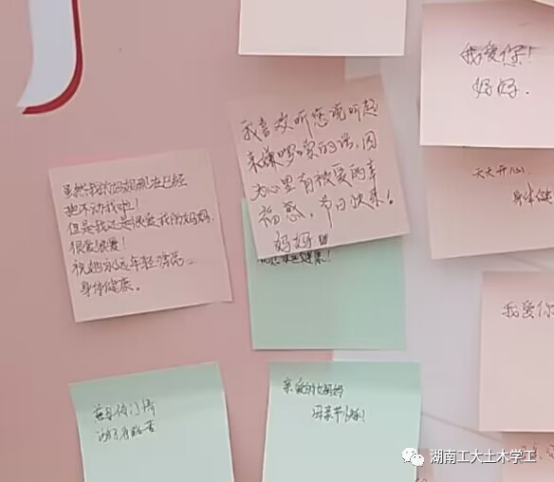 我爱你！
妈妈.
我喜欢听您说听起
来嫌啰嗦的话,因
为心里有被爱的幸
福感，节日快乐！
妈妈
虽然我的妈妈现在已经
抱不动我啦！
但是我还是很爱我的妈妈.
很爱很爱！
祝她永远年轻漂亮
身体健康。
天天开心.
身体健
我爱你
亲爱的妈妈
母亲节快乐!
湖南工大土木学工